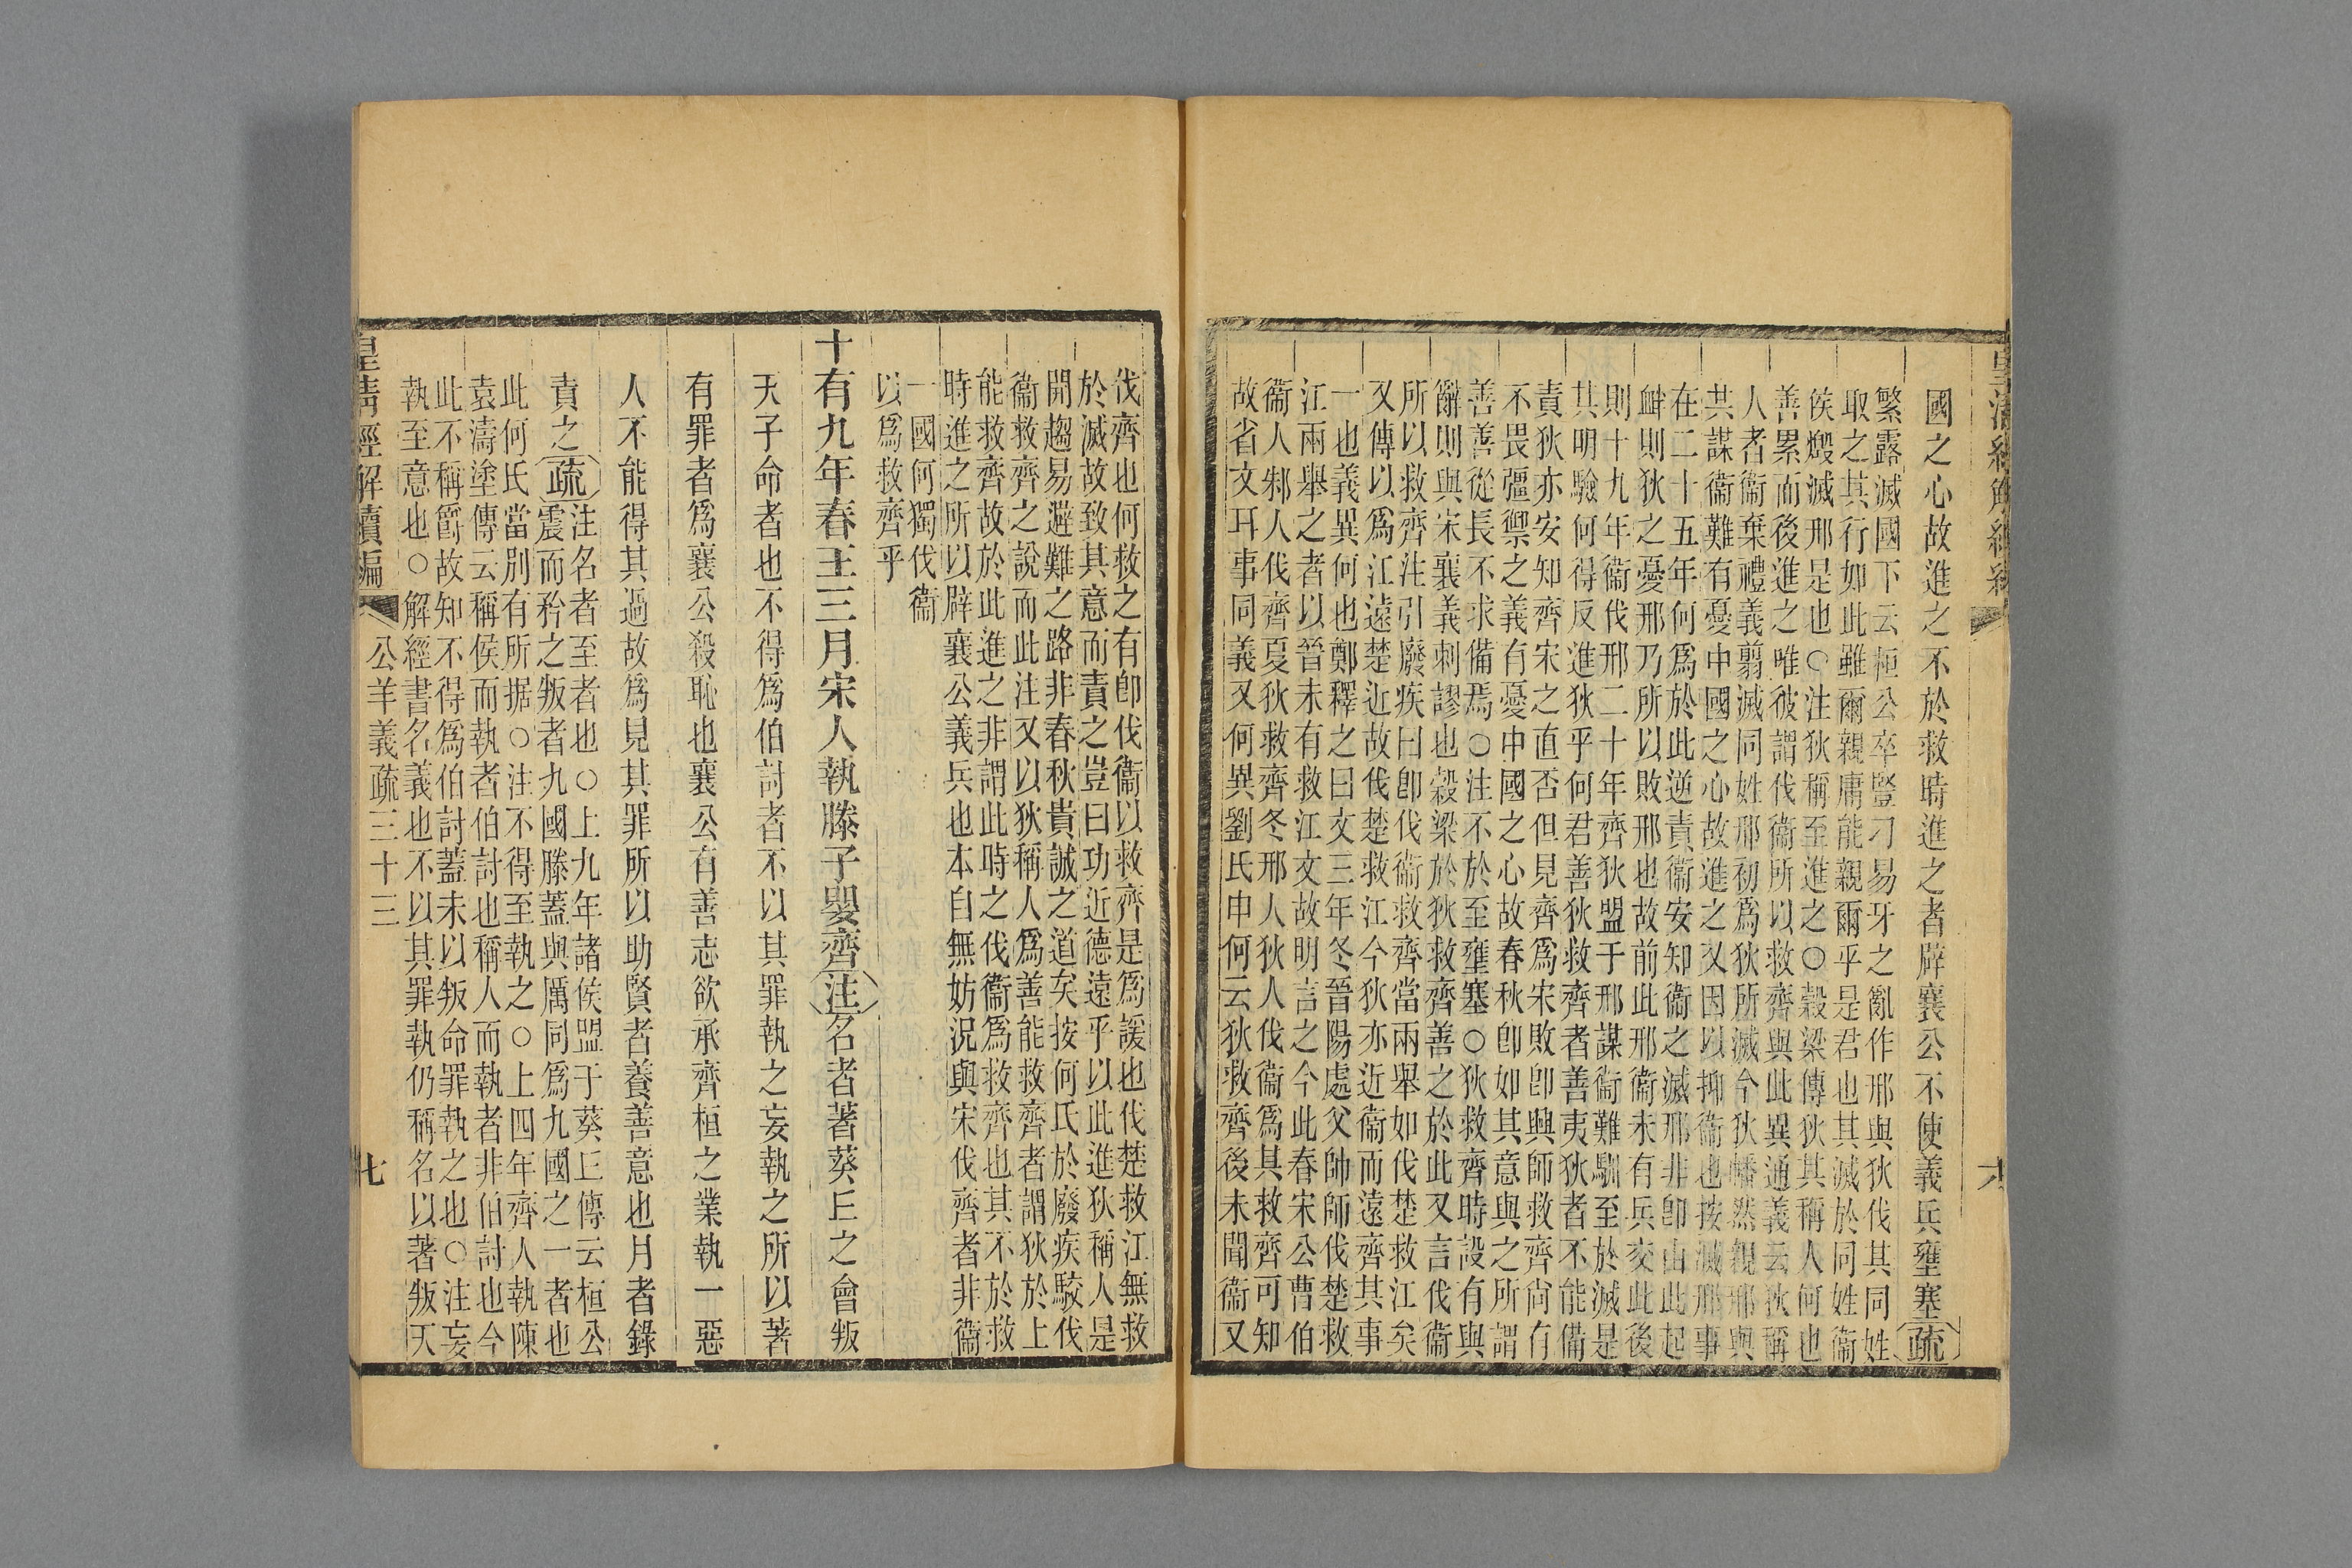 國之心故進之不於救時進之者辟襄公不使義兵壅塞疏
繁露滅國下云桓公卒豎刁易牙之亂作邢與狄伐其同姓
取之其行如此雖爾親庸能親爾乎是君也其滅於同姓衞
侯燬滅邢是也○注狄稱至進之○穀梁傳狄其稱人何也
善累而後進之唯彼謂伐衞所以救齊與此異通義云狄稱
人者衞棄禮義翦滅同姓邢初爲狄所滅今狄幡然親邢與
共謀衞難有憂中國之心故進之又因以抑衞也按滅邢事
在二十五年何爲於此逆責衞安知衞之滅邢非卽由此起
衅則狄之憂邢乃所以敗邢也故前此邢衞未有兵交此後
則十九年衞伐邢二十年齊狄盟于邢謀衞難馴至於滅是
其明驗何得反進狄乎何君善狄救齊者善夷狄者不能備
責狄亦安知齊宋之直否但見齊爲宋敗卽興師救齊尙有
不畏彊禦之義有憂中國之心故春秋卽如其意與之所謂
善善從長不求備焉○注不於至壅塞○狄救齊時設有與
辭則與宋襄義刺謬也穀梁於狄救齊善之於此又言伐衞
所以救齊注引廢疾曰卽伐衞救齊當兩舉如伐楚救江矣
又傳以爲江遠楚近故伐楚救江今狄亦近衞而遠齊其事
一也義異何也鄭釋之曰文三年冬晉陽處父帥師伐楚救
江兩舉之者以晉未有救江文故明言之今此春宋公曹伯
衞人邾人伐齊夏狄救齊冬邢人狄人伐衞爲其救齊可知
故省文耳事同義又何異劉氏申何云狄救齊後未聞衞又
伐齊也何救之有卽伐衞以救齊是爲諼也伐楚救江無救
於滅故致其意而責之豈曰功近德遠乎以此進狄稱人是
開趨易避難之路非春秋貴誠之道矣按何氏於廢疾駁伐
衞救齊之說而此注又以狄稱人爲善能救齊者謂狄於上
能救齊故於此進之非謂此時之伐衞爲救齊也其不於救
時進之所以辟襄公義兵也本自無妨況與宋伐齊者非衞
一國何獨伐衞
以爲救齊乎
十有九年春王三月宋人執滕子嬰齊注名者著葵丘之會叛
天子命者也不得爲伯討者不以其罪執之妄執之所以著
有罪者爲襄公殺恥也襄公有善志欲承齊桓之業執一惡
人不能得其過故爲見其罪所以助賢者養善意也月者錄
責之疏注名者至者也○上九年諸侯盟于葵丘傳云桓公
震而矜之叛者九國滕蓋與厲同爲九國之一者也
此何氏當別有所据○注不得至執之○上四年齊人執陳
袁濤塗傳云稱侯而執者伯討也稱人而執者非伯討也今
此不稱爵故知不得爲伯討蓋未以叛命罪執之也○注妄
執至意也○解經書名義也不以其罪執仍稱名以著叛天
皇清經解續編 公羊義疏三十三 七